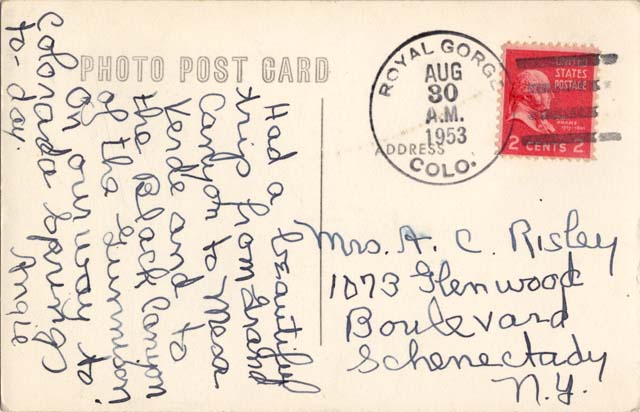 PHOTO POST CARD
Had a beautiful
trip from Grand
Canyon to Mesa
Verde and to
the Black Canyon
of the Gunnison.
On our way to
Colorado Springs
to-day.
Angie
ROYAL GORGE
AUG
30
A.M.
1953
COLO.
ADDRESS
UNITED
STATES
POSTAGE
ADAMS
2 CENTS 2
Mrs. A. C. Risley
1073 Glenwood
Boulevard
Schenectady
N.Y.